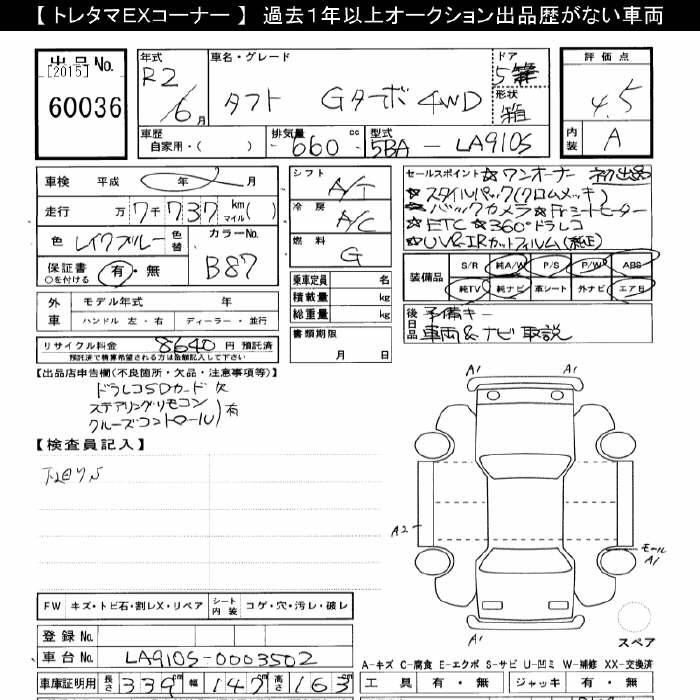 【 トレタマEXコーナー 】 過去1年以上オークション出品歴がない車両
出品 No.
[2015]
60036
年式
R2/6月
車名・グレード
タフト Gターボ 4WD
ドア
5
形状
箱
評価点
4.5
内装
A
車歴
自家用・( )
排気量
660 cc
型式
5BA - LA910S
車検 平成 年 月
走行 万 7千737 km マイル ( )
色 レイクブルー 色替
カラーNo.
B87
保証書 有・無
○を付ける
外車
モデル年式 年
ハンドル 左・右 ディーラー・並行
リサイクル料金 8640 円 預託済
預託済で精算希望される方は金額記入して下さい
シフト
A/T
冷房
A/C
燃料
G
乗車定員 名
積載量 kg
総重量 kg
書類期限
月 日
セールスポイント ☆ワンオーナー 初出品
☆スタイルパック(クロムメッキ)
☆バックカメラ ☆Frシートヒーター
☆ETC ☆360°ドラレコ
☆UV&IRカットフィルム(純正)
装備品
S/R 純A/W P/S P/W ABS
純TV 純ナビ 革シート 外ナビ エアB
後日品
予備キー
車両&ナビ取説
【出品店申告欄(不良箇所・欠品・注意事項等)】
ドラレコSDカード欠
ステアリングリモコン
クルーズコントロール)有
【検査員記入】
下回りS
A1 A1
A2
モール
A1
A1
スペア
FW キズ・トビ石・割レX・リペア シート内装 コゲ・穴・汚レ・破レ
登録 No.
車台 No. LA910S-0003502
車庫証明用 長さ 339 cm 幅 147 cm 高さ 163 cm
A-キズ C-腐食 E-エクボ S-サビ U-凹ミ W-補修 XX-交換済
工具 有・無 ジャッキ 有・無